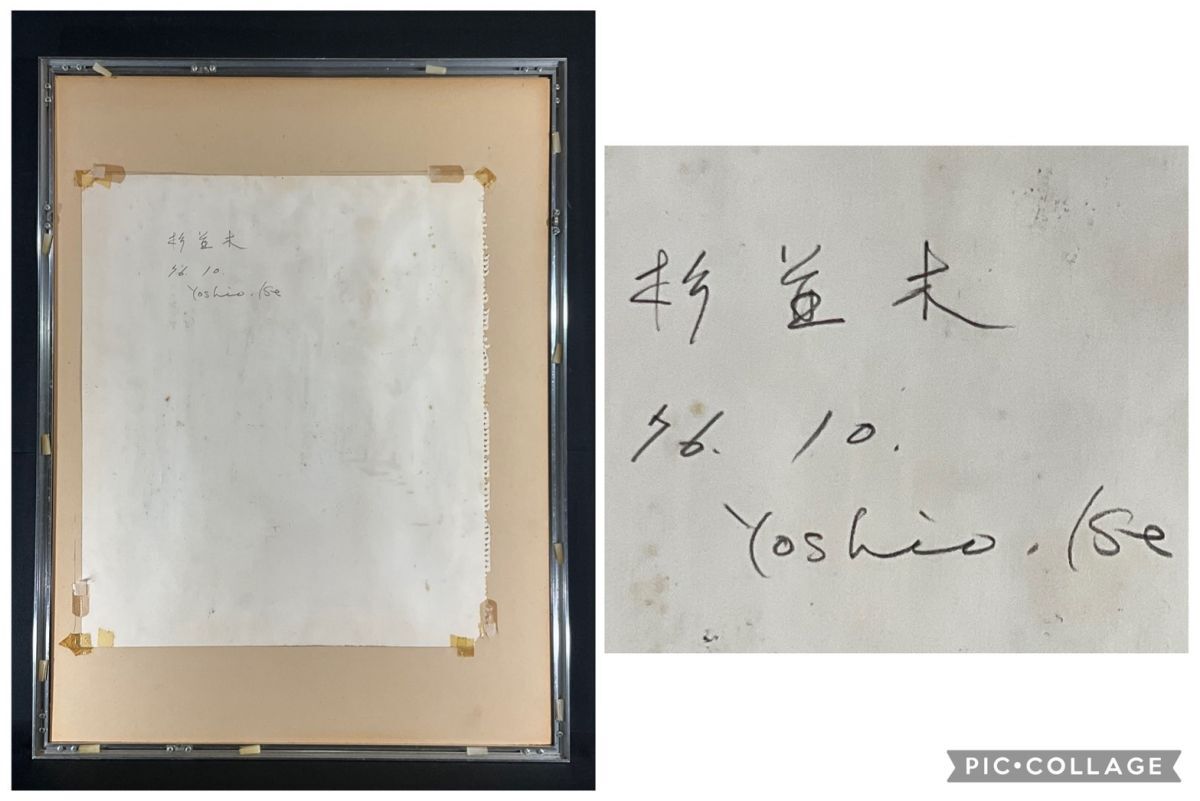 杉並木
76. 10.
Yoshio. Ise
杉並木
76. 10.
Yoshio. Ise
PIC•COLLAGE